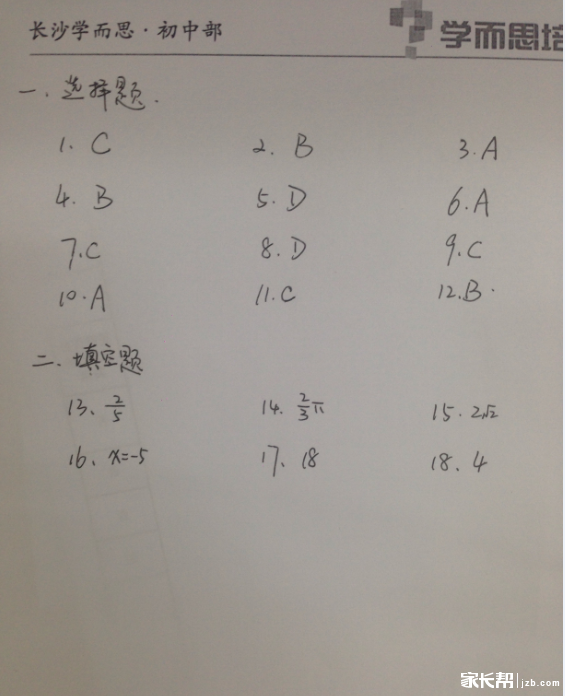 长沙学而思·初中部 学而思培
一. 选择题.
1. C 2. B 3. A
4. B 5. D 6. A
7. C 8. D 9. C
10. A 11. C 12. B.
二. 填空题
13、2/5 14. 2/3π 15. 2√2
16、x=-5 17、18 18、4
家长帮 jzb.com